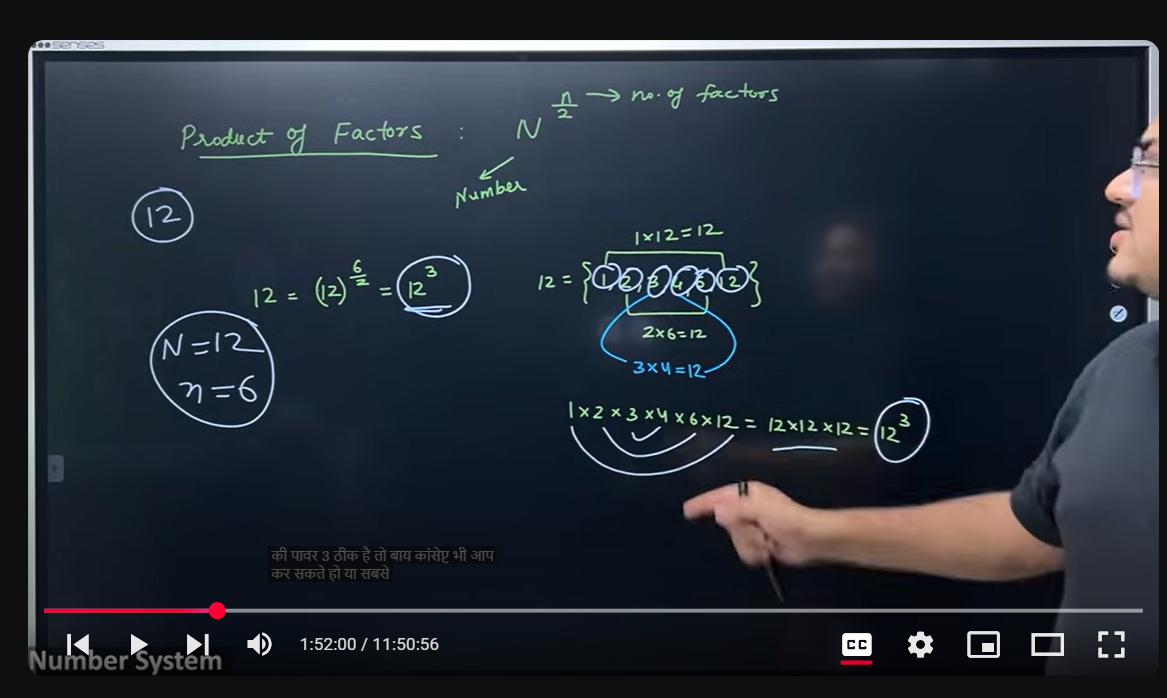 senses
Product of Factors : N^(n/2) → no. of factors
Number
12
1×12=12
12 = (12)^(6/2) = 12^3
12 = {1, 2, 3, 4, 6, 12}
N=12
n=6
2×6=12
3×4=12
1×2×3×4×6×12 = 12×12×12 = 12^3
की पावर 3 ठीक है तो बाय कांसेप्ट भी आप
कर सकते हो या सबसे
1:52:00 / 11:50:56
CC
Number System